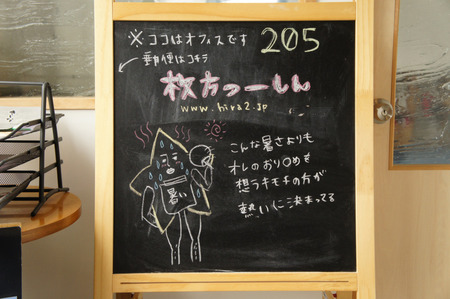 ※ ココはオフィスです
205
郵便はコチラ
枚方つーしん
www.hira2.jp
こんな暑さよりも
オレのおり○めを
想うキモチの方が
熱いに決まってる
暑い